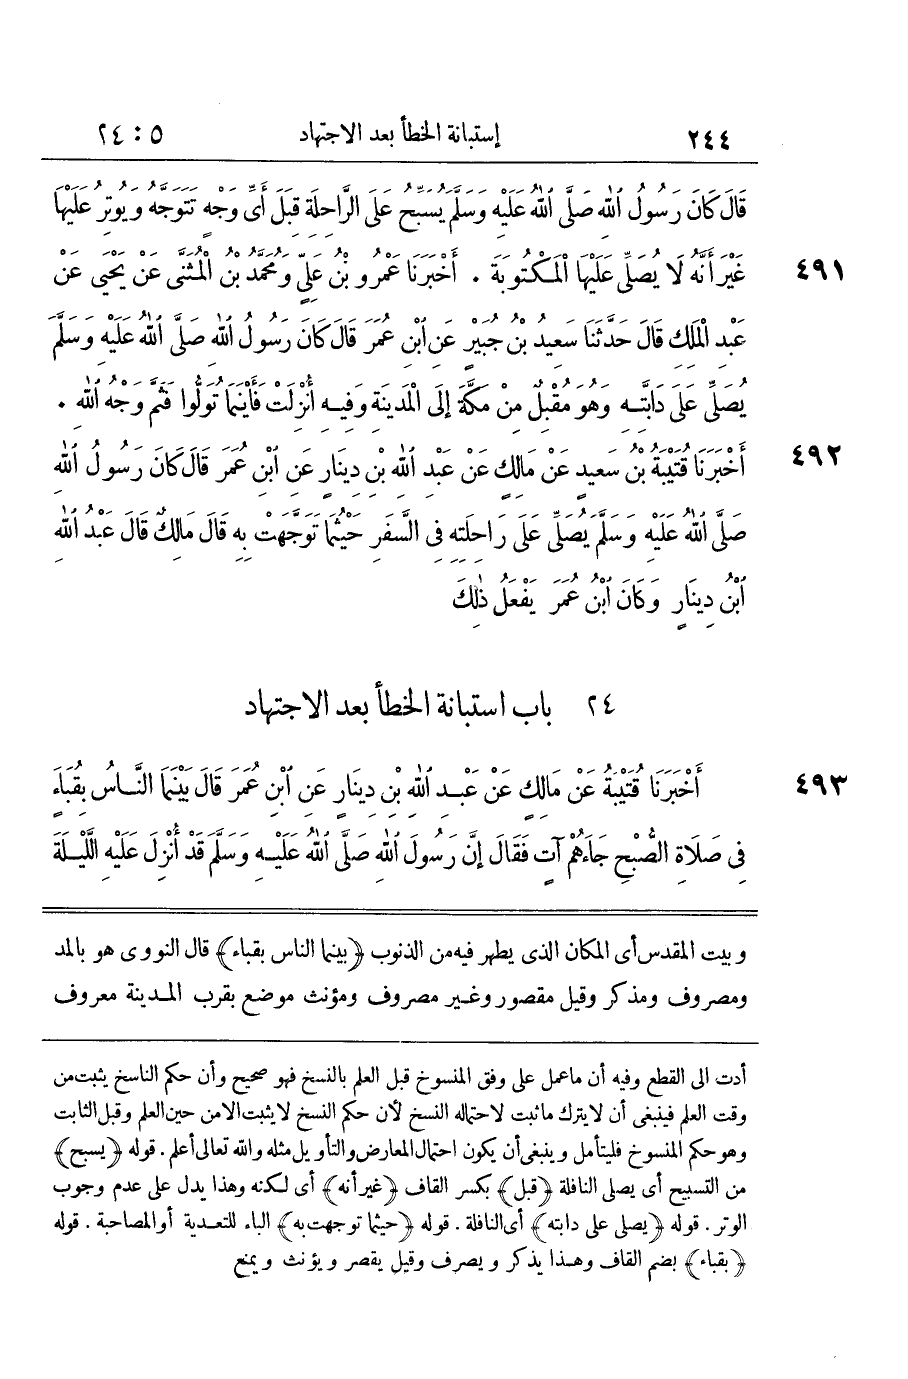 ٢٤٤ إستبانة الخطأ بعد الاجتهاد ٥ : ٢٤
قَالَ كَانَ رَسُولُ اللهِ صَلَّى اللهُ عَلَيْهِ وَسَلَّمَ يُسَبِّحُ عَلَى الرَّاحِلَةِ قِبَلَ أَىِّ وَجْهٍ تَتَوَجَّهُ وَيُوتِرُ عَلَيْهَا
٤٩١ غَيْرَ أَنَّهُ لَا يُصَلِّى عَلَيْهَا الْمَكْتُوبَةَ . أَخْبَرَنَا عَمْرُو بْنُ عَلِىٍّ وَمُحَمَّدُ بْنُ الْمُثَنَّى عَنْ يَحْيَى عَنْ
عَبْدِ الْمَلِكِ قَالَ حَدَّثَنَا سَعِيدُ بْنُ جُبَيْرٍ عَنِ ابْنِ عُمَرَ قَالَ كَانَ رَسُولُ اللهِ صَلَّى اللهُ عَلَيْهِ وَسَلَّمَ
يُصَلِّى عَلَى دَابَّتِهِ وَهُوَ مُقْبِلٌ مِنْ مَكَّةَ إِلَى الْمَدِينَةِ وَفِيهِ أُنْزِلَتْ فَأَيْنَمَا تُوَلُّوا فَثَمَّ وَجْهُ اللهِ .
٤٩٢ أَخْبَرَنَا قُتَيْبَةُ بْنُ سَعِيدٍ عَنْ مَالِكٍ عَنْ عَبْدِ اللهِ بْنِ دِينَارٍ عَنِ ابْنِ عُمَرَ قَالَ كَانَ رَسُولُ اللهِ
صَلَّى اللهُ عَلَيْهِ وَسَلَّمَ يُصَلِّى عَلَى رَاحِلَتِهِ فِى السَّفَرِ حَيْثُمَا تَوَجَّهَتْ بِهِ قَالَ مَالِكٌ قَالَ عَبْدُ اللهِ
ابْنُ دِينَارٍ وَكَانَ ابْنُ عُمَرَ يَفْعَلُ ذٰلِكَ
٢٤ باب استبانة الخطأ بعد الاجتهاد
٤٩٣ أَخْبَرَنَا قُتَيْبَةُ عَنْ مَالِكٍ عَنْ عَبْدِ اللهِ بْنِ دِينَارٍ عَنِ ابْنِ عُمَرَ قَالَ بَيْنَمَا النَّاسُ بِقُبَاءٍ
فِى صَلَاةِ الصُّبْحِ جَاءَهُمْ آتٍ فَقَالَ إِنَّ رَسُولَ اللهِ صَلَّى اللهُ عَلَيْهِ وَسَلَّمَ قَدْ أُنْزِلَ عَلَيْهِ اللَّيْلَةَ
وبيت المقدس أى المكان الذى يطهر فيه من الذنوب ﴿بينما الناس بقباء﴾ قال النووى هو بالمد
ومصروف ومذكر وقيل مقصور وغير مصروف ومؤنث موضع بقرب المدينة معروف
أدت الى القطع وفيه أن ماعمل على وفق المنسوخ قبل العلم بالنسخ فهو صحيح وأن حكم الناسخ يثبت من
وقت العلم فينبغى أن لايترك ماثبت لاحتماله النسخ لأن حكم النسخ لايثبت الامن حين العلم وقبل الثابت
وهو حكم المنسوخ فليتأمل وينبغى أن يكون احتمال المعارض والتأويل مثله والله تعالى أعلم . قوله ﴿يسبح﴾
من التسبيح أى يصلى النافلة ﴿قبل﴾ بكسر القاف ﴿غير أنه﴾ أى لكنه وهذا يدل على عدم وجوب
الوتر . قوله ﴿يصلى على دابته﴾ أى النافلة . قوله ﴿حيثما توجهت به﴾ الباء للتعدية أو المصاحبة . قوله
﴿بقباء﴾ بضم القاف وهذا يذكر ويصرف وقيل يقصر ويؤنث ويمنع